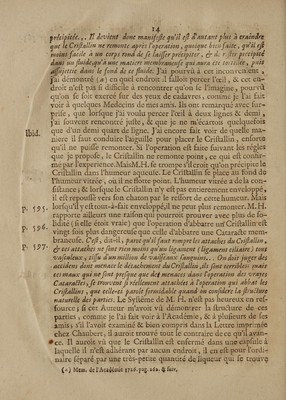 14
précipitée... Il devient donc manifeste qu'il est d'autant plus à craindre
que le Cristallin ne remonte après l'operation, quoique bien faite, qu'il est
moins facile à un corps rond de se laisser précipiter, & de rester précipité
dans un fluide, qu'à une matiere membraneuse qui aura été roulée, puis
assujettie dans le fond de ce fluide. J'ai pourvû à cet inconvenient,
j'ai démontré (a) en quel endroit il falloit percer l'œil, & cet en-
droit n'est pas si difficile à rencontrer qu'on se l'imagine, pourvû
qu'on se soit exercé sur des yeux de cadavres, comme je l'ai fait
voir à quelques Medecins de mes amis. Ils ont remarqué avec sur-
prise, que lorsque j'ai voulu percer l'œil à deux lignes & demi,
j'ai souvent rencontré juste, & que je ne m'écartois quelquefois
que d'un demi quart de ligne. J'ai encore fait voir de quelle ma-
niere il faut conduire l'aiguille pour placer le Cristallin, ensorte
qu'il ne puisse remonter. Si l'operation est faite suivant les régles
que je propose, le Cristallin ne remonte point, ce qui est confir-
mé par l'experience. Mais M. H. se trompe s'il croit qu'on précipite le
Cristallin dans l'humeur aqueuse. Le Cristallin se place au fond de
l'humeur vitrée, où il ne flotte point. L'humeur vitrée a de la con-
sistance; & lorsque le Cristallin n'y est pas entierement enveloppé,
il est repoussé vers son chaton par le ressort de cette humeur. Mais
lorsqu'il y est tout-à-fait enveloppé, il ne peut plus remonter. M. H.
rapporte ailleurs une raison qui pourroit prouver avec plus de so-
lidité (si elle étoit vraie) que l'operation d'abbattre un Cristallin est
vingt fois plus dangereuse que celle d'abbattre une Cataracte mem-
braneuse. C'est, dit-il, parce qu'il faut rompre les attaches du Cristallin,
& ces attaches ne sont rien moins qu'un ligament (ligament ciliaire) tout
vasculeux, tissu d'un million de vaisseaux sanguins... On doit juger des
accidens dont menace le détachement du Cristallin, ils sont terribles parmi
ces maux qui ne sont presque que des menaces dans l'operation des vrayes
Cataractes, se trouvent si réellement attachées à l'operation qui abbat les
Cristallins, que telle-cy paroît formidable quand on considere la structure
naturelle des parties. Le Systême de M. H. n'est pas heureux en res-
source; si cet Auteur m'avoit vû démontrer la structure de ces
parties, comme je l'ai fait voir à l'Académie, & à plusieurs de ses
amis; s'il avoit examiné & bien compris dans la Lettre imprimée
chez Chaubert, il auroit trouvé tout le contraire de ce qu'il avan-
ce. Il auroit vû que le Cristallin est enfermé dans une capsule à
laquelle il n'est adhérent par aucun endroit, il en est pour l'ordi-
naire séparé par une très-petite quantité de liqueur qui se trouve
(a) Mem. de l'Académie 1726. pag. 262. & suiv.
Ibid.
p. 595.
p. 596.
p. 597.